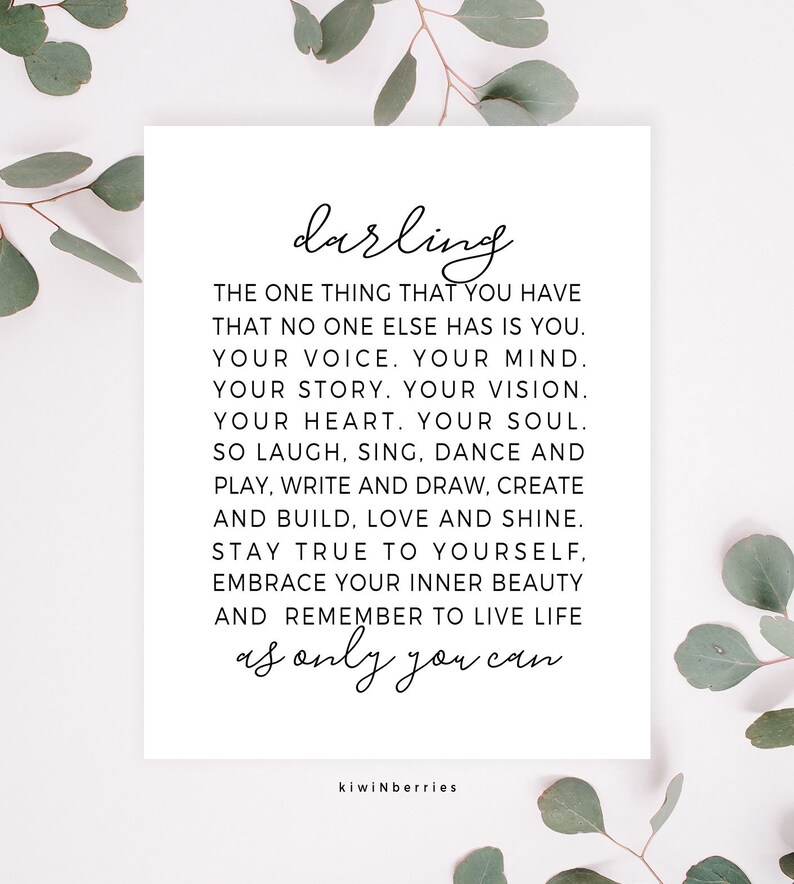 darling
THE ONE THING THAT YOU HAVE
THAT NO ONE ELSE HAS IS YOU.
YOUR VOICE. YOUR MIND.
YOUR STORY. YOUR VISION.
YOUR HEART. YOUR SOUL.
SO LAUGH, SING, DANCE AND
PLAY, WRITE AND DRAW, CREATE
AND BUILD, LOVE AND SHINE.
STAY TRUE TO YOURSELF,
EMBRACE YOUR INNER BEAUTY
AND REMEMBER TO LIVE LIFE
as only you can
kiwiNberries